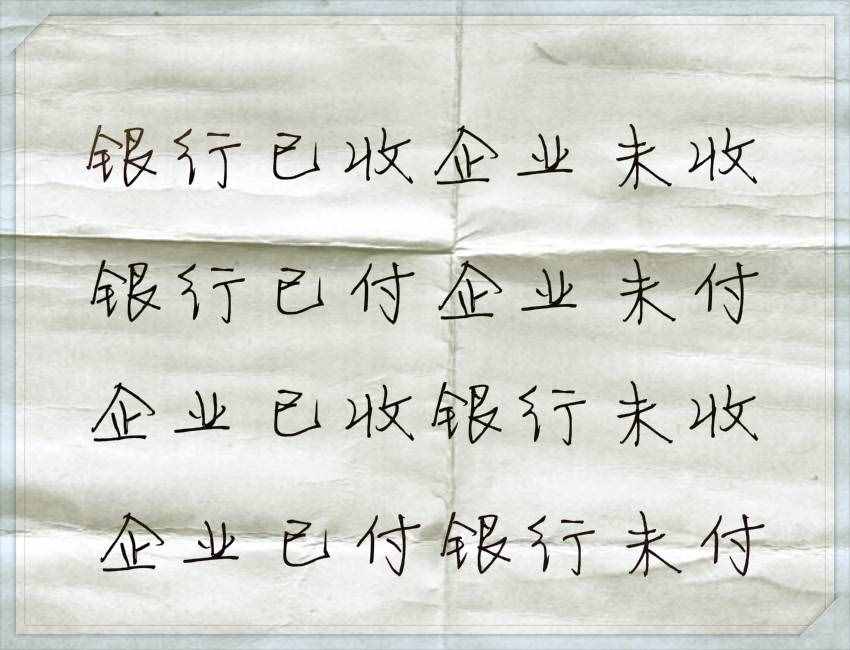 银行已收企业未收
银行已付企业未付
企业已收银行未收
企业已付银行未付